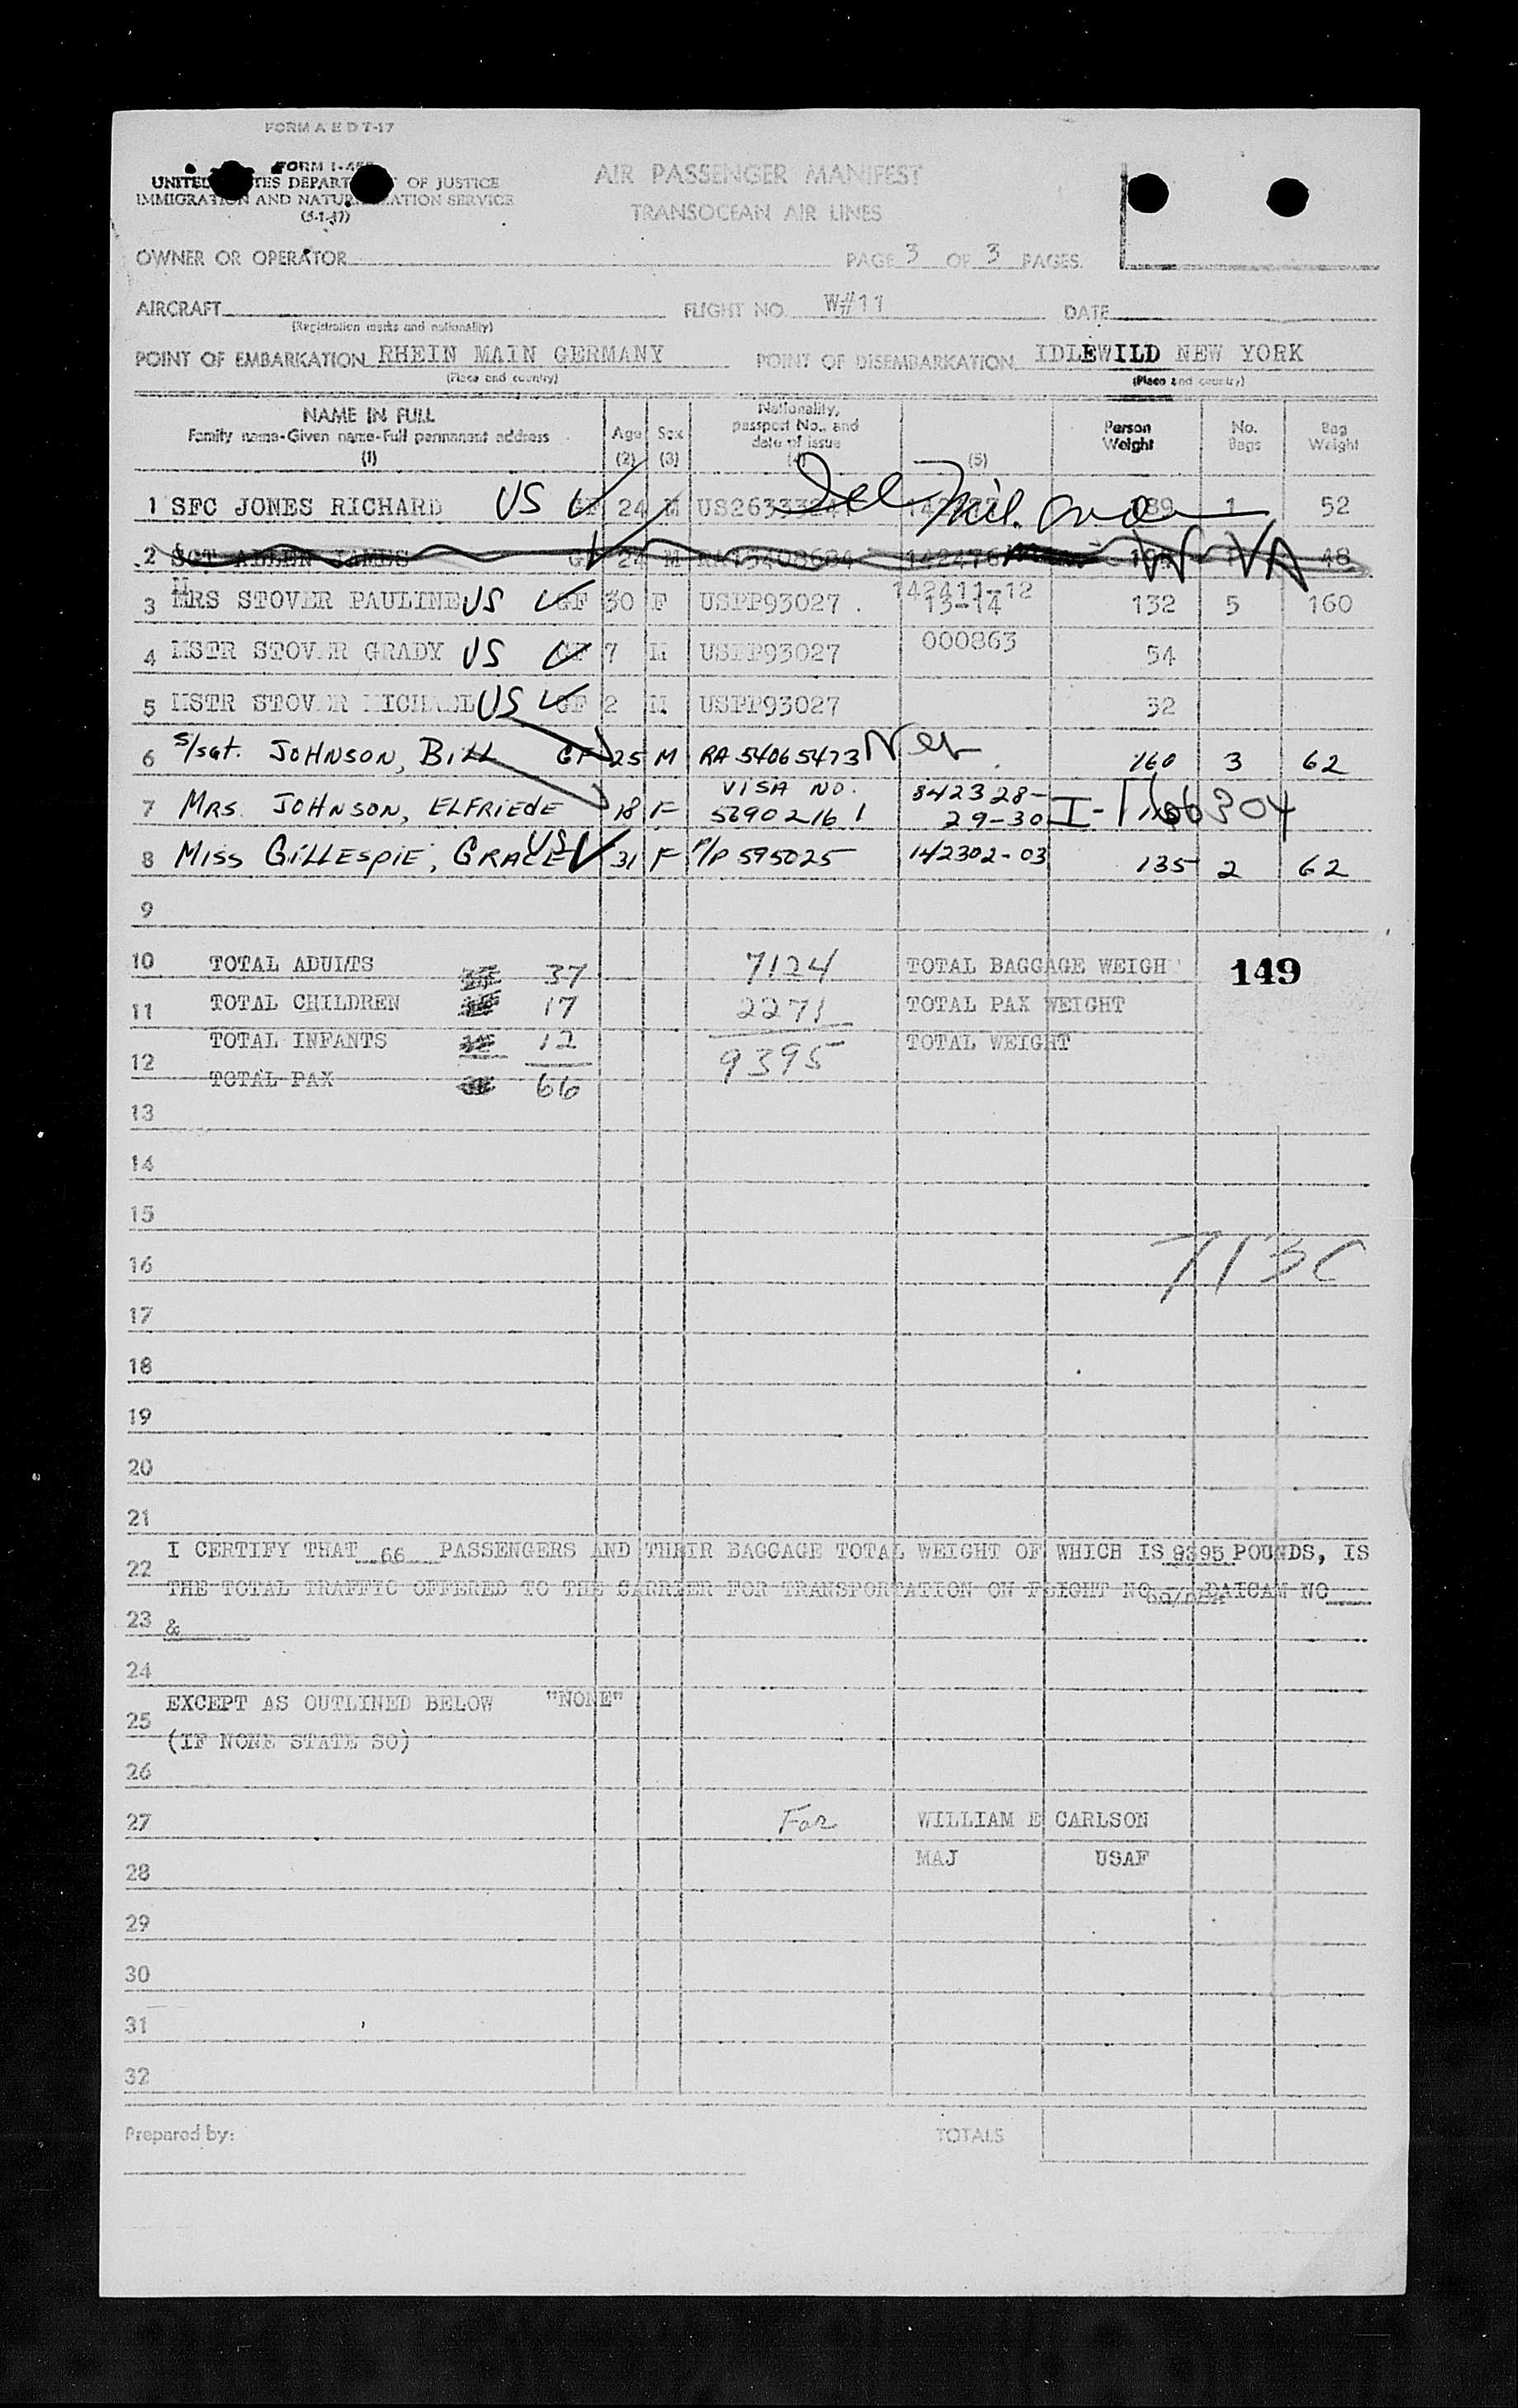 FORM A E D 7-17
FORM I-
UNITED STATES DEPARTMENT OF JUSTICE
IMMIGRATION AND NATURALIZATION SERVICE
AIR PASSENGER MANIFEST
TRANSOCEAN AIR LINES
OWNER OR OPERATOR PAGE 3 OF 3 PAGES
AIRCRAFT FLIGHT NO. W#11 DATE
(Registration marks and nationality)
POINT OF EMBARKATION RHEIN MAIN GERMANY POINT OF DISEMBARKATION IDLEWILD NEW YORK
(Place and country) (Place and country)
NAME IN FULL
Family name-Given name-Full permanent address
(1)
Age
(2)
Sex
(3)
Nationality,
passport No., and
date of issue
(4)
(5)
Person
Weight
No.
Bags
Bag
Weight
1 SFC JONES RICHARD US GF 24 M 1 52
2 SGT ALLEN JAMES GF 24 M RA15408684 48
W VA
3 MRS STOVER PAULINE US GF 30 F USPP93027 142411-12 13-14 132 5 160
4 MSTR STOVER GRADY US GF 7 M USPP93027 000863 54
5 MSTR STOVER MICHAEL US GF 2 M USPP93027 32
6 S/SGT. JOHNSON, BILL GF 25 M RA 54065473 160 3 62
7 MRS. JOHNSON, ELFRIEDE 18 F VISA NO. 842328- 29-30
8 MISS GILLESPIE, GRACE US 31 F P/P 595025 142302-03 135 2 62
9
10 TOTAL ADULTS 37 7124 TOTAL BAGGAGE WEIGH 149
11 TOTAL CHILDREN 17 2271 TOTAL PAX WEIGHT
TOTAL INFANTS 12 9395 TOTAL WEIGHT
12 TOTAL PAX 66
13
14
15
16
17
18
19
20
21
I CERTIFY THAT 66 PASSENGERS AND THEIR BAGGAGE TOTAL WEIGHT OF WHICH IS 9395 POUNDS, IS
22
THE TOTAL TRAFFIC OFFERED TO THE CARRIER FOR TRANSPORTATION ON FLIGHT NO DAICAM NO
23 &
24
EXCEPT AS OUTLINED BELOW "NONE"
25
(IF NONE STATE SO)
26
27 For WILLIAM E CARLSON
28 MAJ USAF
29
30
31
32
Prepared by: TOTALS